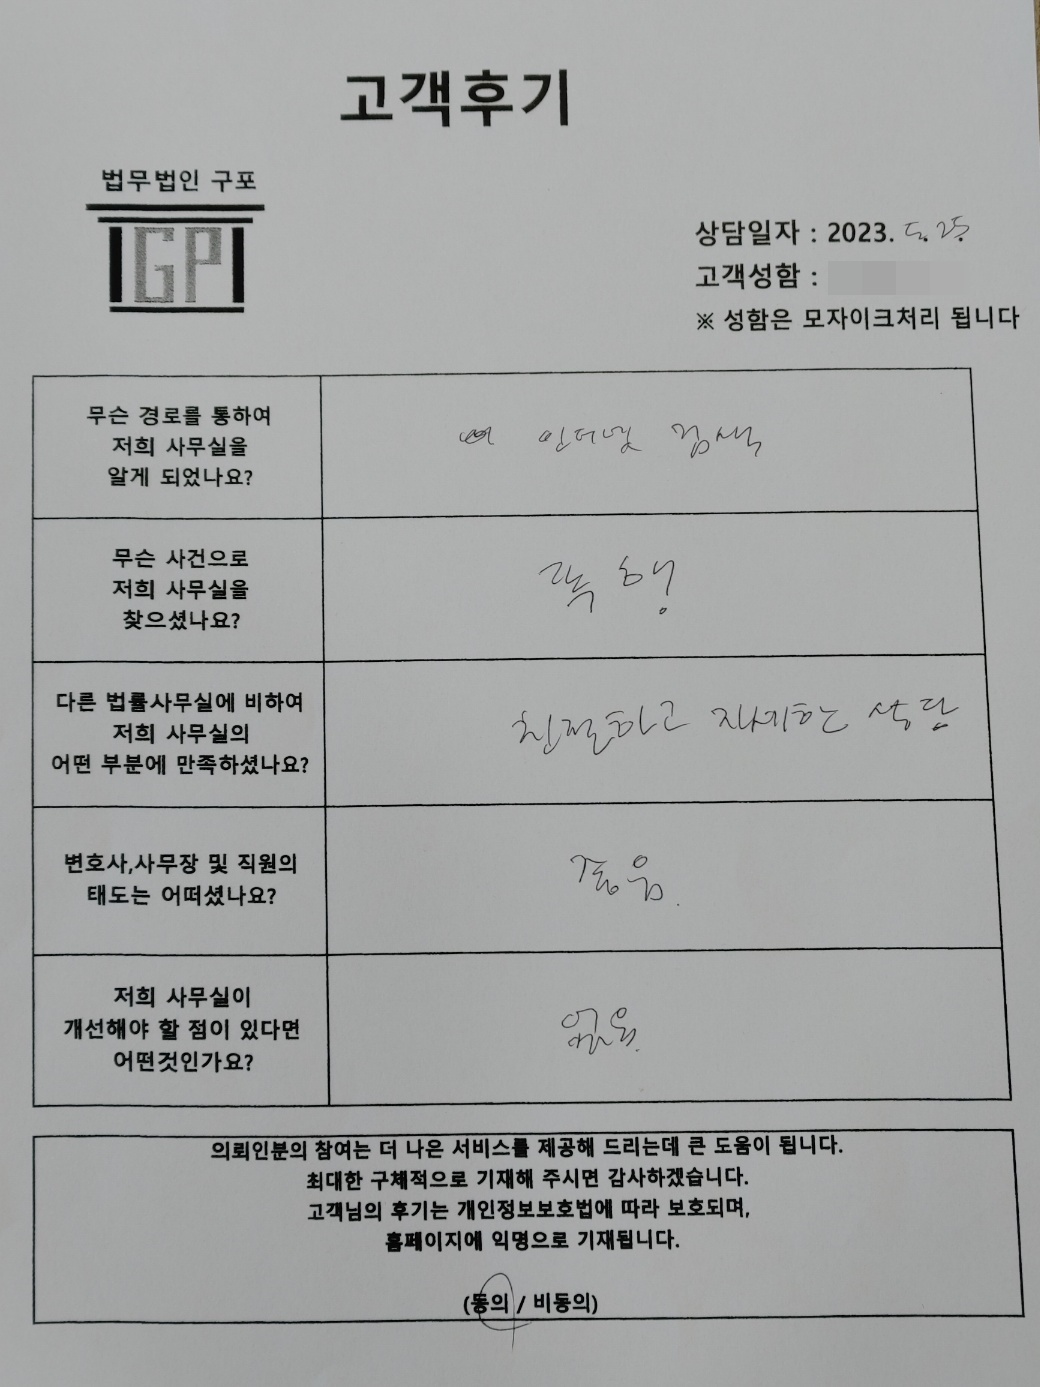 고객후기
법무법인 구포
GP
상담일자 : 2023. 5. 25.
고객성함 :
※ 성함은 모자이크처리 됩니다
무슨 경로를 통하여
저희 사무실을
알게 되었나요?
인터넷 검색
무슨 사건으로
저희 사무실을
찾으셨나요?
폭행
다른 법률사무실에 비하여
저희 사무실의
어떤 부분에 만족하셨나요?
친절하고 자세하는 상담
변호사,사무장 및 직원의
태도는 어떠셨나요?
좋음.
저희 사무실이
개선해야 할 점이 있다면
어떤것인가요?
없음.
의뢰인분의 참여는 더 나은 서비스를 제공해 드리는데 큰 도움이 됩니다.
최대한 구체적으로 기재해 주시면 감사하겠습니다.
고객님의 후기는 개인정보보호법에 따라 보호되며,
홈페이지에 익명으로 기재됩니다.
(동의 / 비동의)